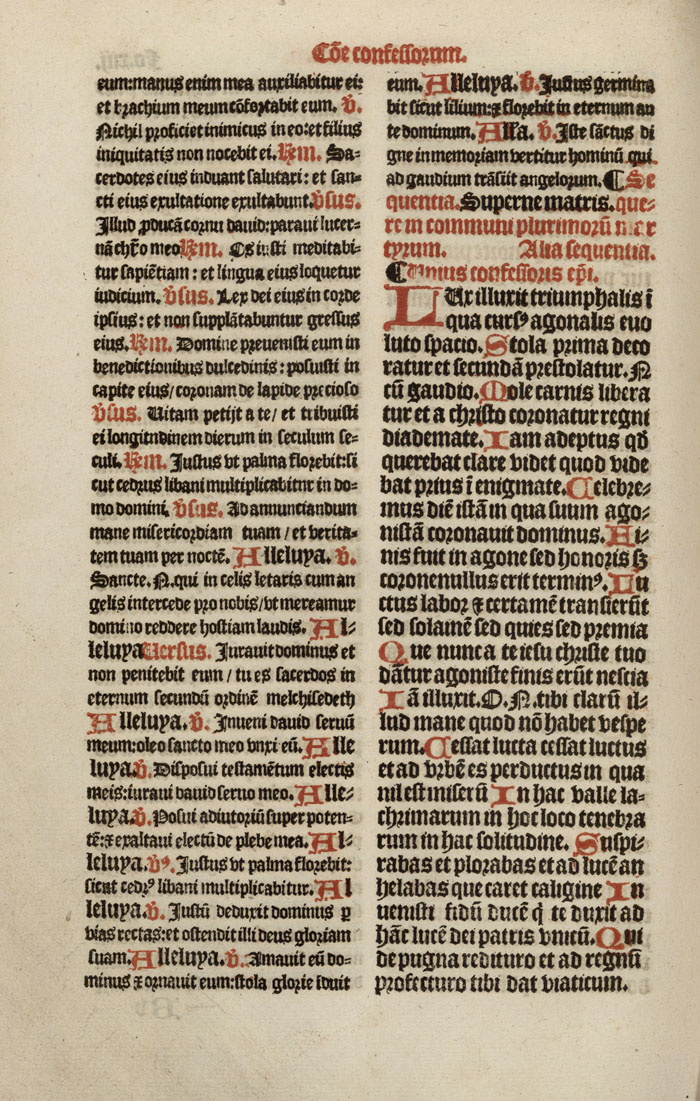 Cõe confessorum.
eum:manus enim mea auxiliabitur ei:
et brachium meum cõfortabit eum. V̄.
Nichil proficiet inimicus in eo:et filius
iniquitatis non nocebit ei. Rm̄. Sa-
cerdotes eius induant salutari: et san-
cti eius exultatione exultabunt. V̄sus.
Illud ꝓducã cornu dauid:paraui lucer-
nã chr̃o meo Rm̄. Os iusti meditabi-
tur sapiẽtiam: et lingua eius loquetur
iudicium. V̄sus. Lex dei eius in corde
ipsius: et non supplãtabuntur gressus
eius. Rm̄. Domine preuenisti eum in
benedictionibus dulcedinis: posuisti in
capite eius/ coronam de lapide precioso
V̄sus. Uitam petijt a te/ et tribuisti
ei longitudinem dierum in seculum se-
culi. Rm̄. Justus vt palma florebit:si
cut cedrus libani multiplicabitur in do-
mo domini. V̄sus. Ad annunciandum
mane misericordiam tuam/ et verita-
tem tuam per noctẽ. Alleluya. V̄.
Sancte. N. qui in celis letaris cum an
gelis intercede pro nobis/vt mereamur
domino reddere hostiam laudis. Al-
leluya Versus. Jurauit dominus et
non penitebit eum/ tu es sacerdos in
eternum secundũ ordinẽ melchisedeth
Alleluya. V̄. Inueni dauid seruũ
meum:oleo sancto meo vnxi eũ. Alle
luya. V̄. Disposui testamẽtum electis
meis:iuraui dauid seruo meo. Alle-
luya. V̄. Posui adiutoriũ super poten-
tẽ:⁊ exaltaui electũ de plebe mea. Al-
leluya. V̄ꝰ. Justus vt palma florebit:
sicut cedrꝰ libani multiplicabitur. Al
leluya. V̄. Justũ deduxit dominus ꝑ
vias rectas:et ostendit illi deus gloriam
suam. Alleluya. V̄. Amauit eũ do-
minus ⁊ ornauit eum:stola glorie iduit
eum. Alleluya. V̄. Justus germina
bit sicut lilium:⁊ florebit in eternum an
te dominum. Alla. V̄. Iste sãctus di
gne in memoriam vertitur hominũ qui
ad gaudium trãsiit angelorum. ¶ Se
quentia. Superne matris. que-
re in communi plurimorũ mar
tyrum. Alia sequentia.
¶ Unius confessoris ep̃i.
LUx illuxit triumphalis ĩ
qua cursꝰ agonalis euo
luto spacio. Stola prima deco
ratur et secundã prestolatur. N
cũ gaudio. Mole carnis libera
tur et a christo coronatur regni
diademate. Iam adeptus qđ
querebat clare videt quod vide
bat prius ĩ enigmate. Celebre-
mus diẽ istã in qua suum ago-
nistã coronauit dominus. Fi-
nis fuit in agone sed honoris sꝫ
corone nullus erit terminꝰ. Lu
ctus labor ⁊ certamẽ transierũt
sed solamẽ sed quies sed premia
Que nunca te iesu christe tuo
dãtur agoniste finis erũt nescia
Iã illuxit. O. N. tibi clarũ il-
lud mane quod nõ habet vespe
rum. Cessat lucta cessat luctus
et ad vrbẽ es perductus in qua
nil est miserũ In hac valle la-
chrimarum in hoc loco tenebra
rum in hac solitudine. Suspi-
rabas et plorabas et ad lucẽ an
helabas que caret caligine In
uenisti fidũ ducẽ q̃ te duxit ad
hãc lucẽ dei patris vnicũ. Qui
de pugna redituro et ad regnũ
profecturo tibi dat viaticum.